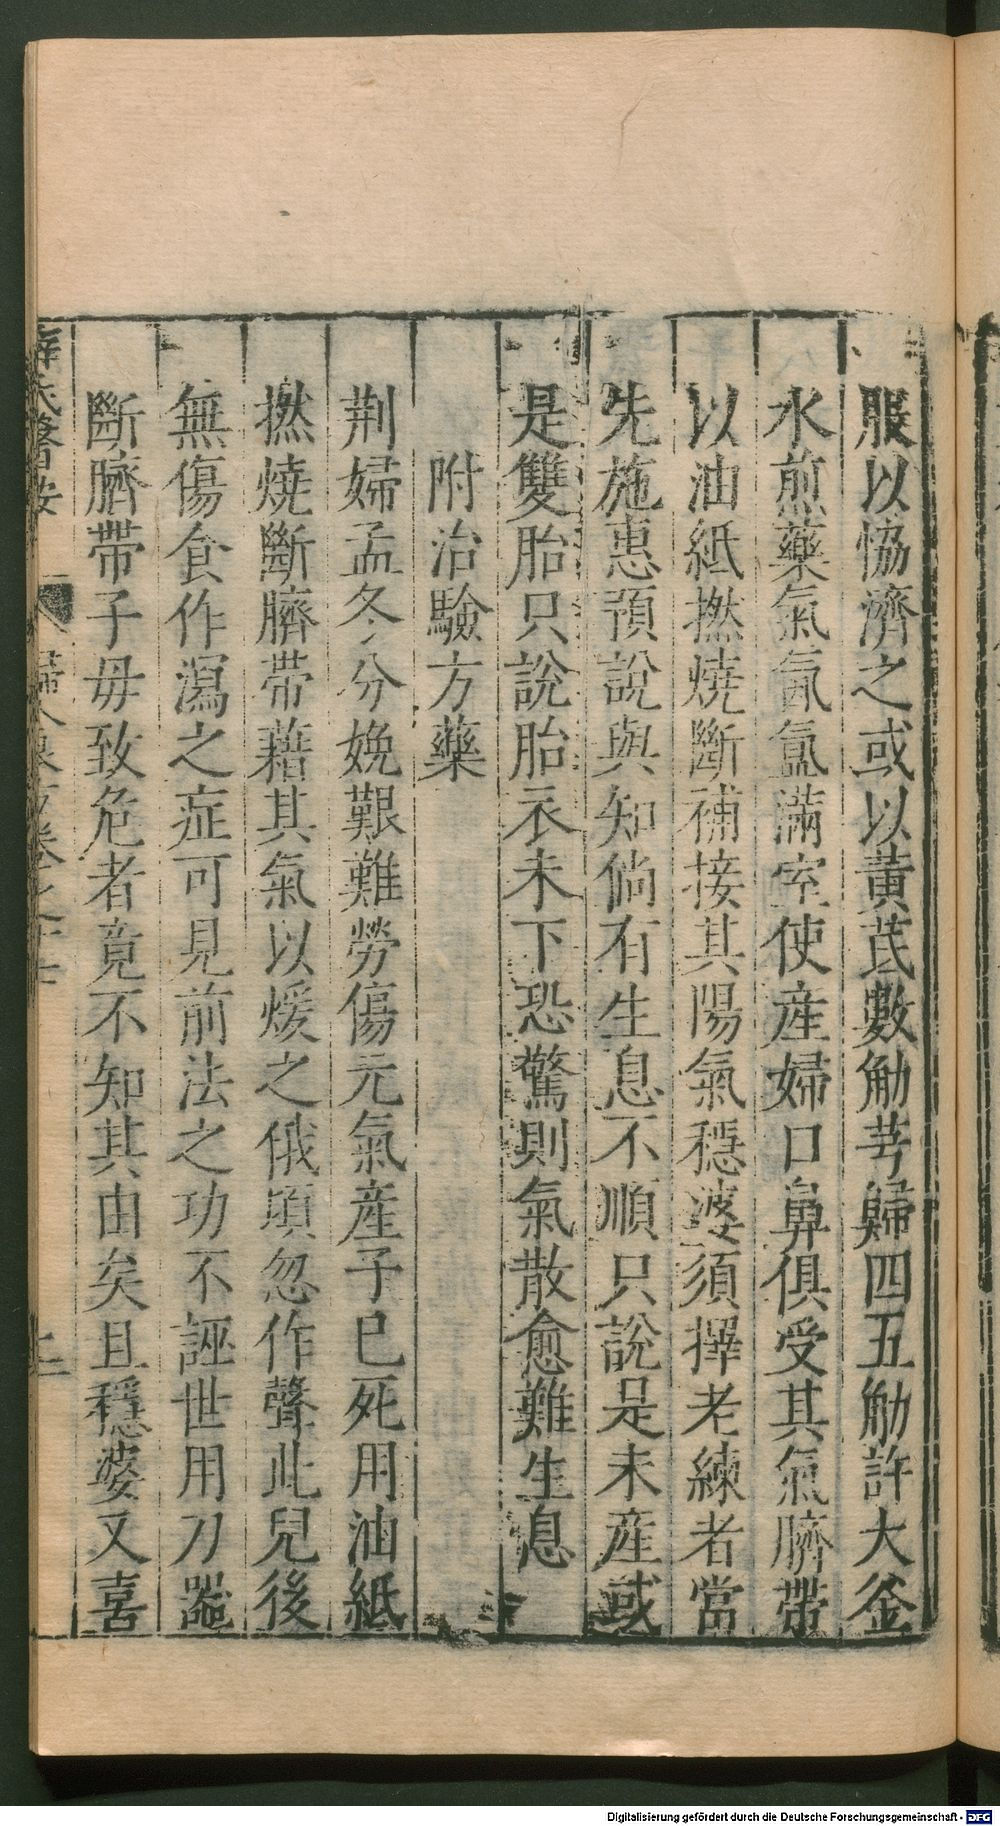 服以恊濟之或以黄芪數觔芎歸四五觔許大釜
水煎藥氣氤氳滿室使産婦口鼻俱受其氣臍帶
以油紙撚燒斷補接其陽氣穩婆須擇老練者當
先施惠預說與知倘有生息不順只說是未産或
是雙胎只說胎衣未下恐驚則氣散愈難生息
附治驗方藥
荆婦孟冬分娩艱難勞傷元氣産子已死用油紙
撚燒斷臍帶藉其氣以煖之俄頃忽作聲此兒後
無傷食作瀉之症可見前法之功不誣世用刀器
斷臍帶子毋致危者竟不知其由矣且穩婆又喜
薛氏醫按 婦人良方卷之十七 上二
Digitalisierung gefördert durch die Deutsche Forschungsgemeinschaft - DFG